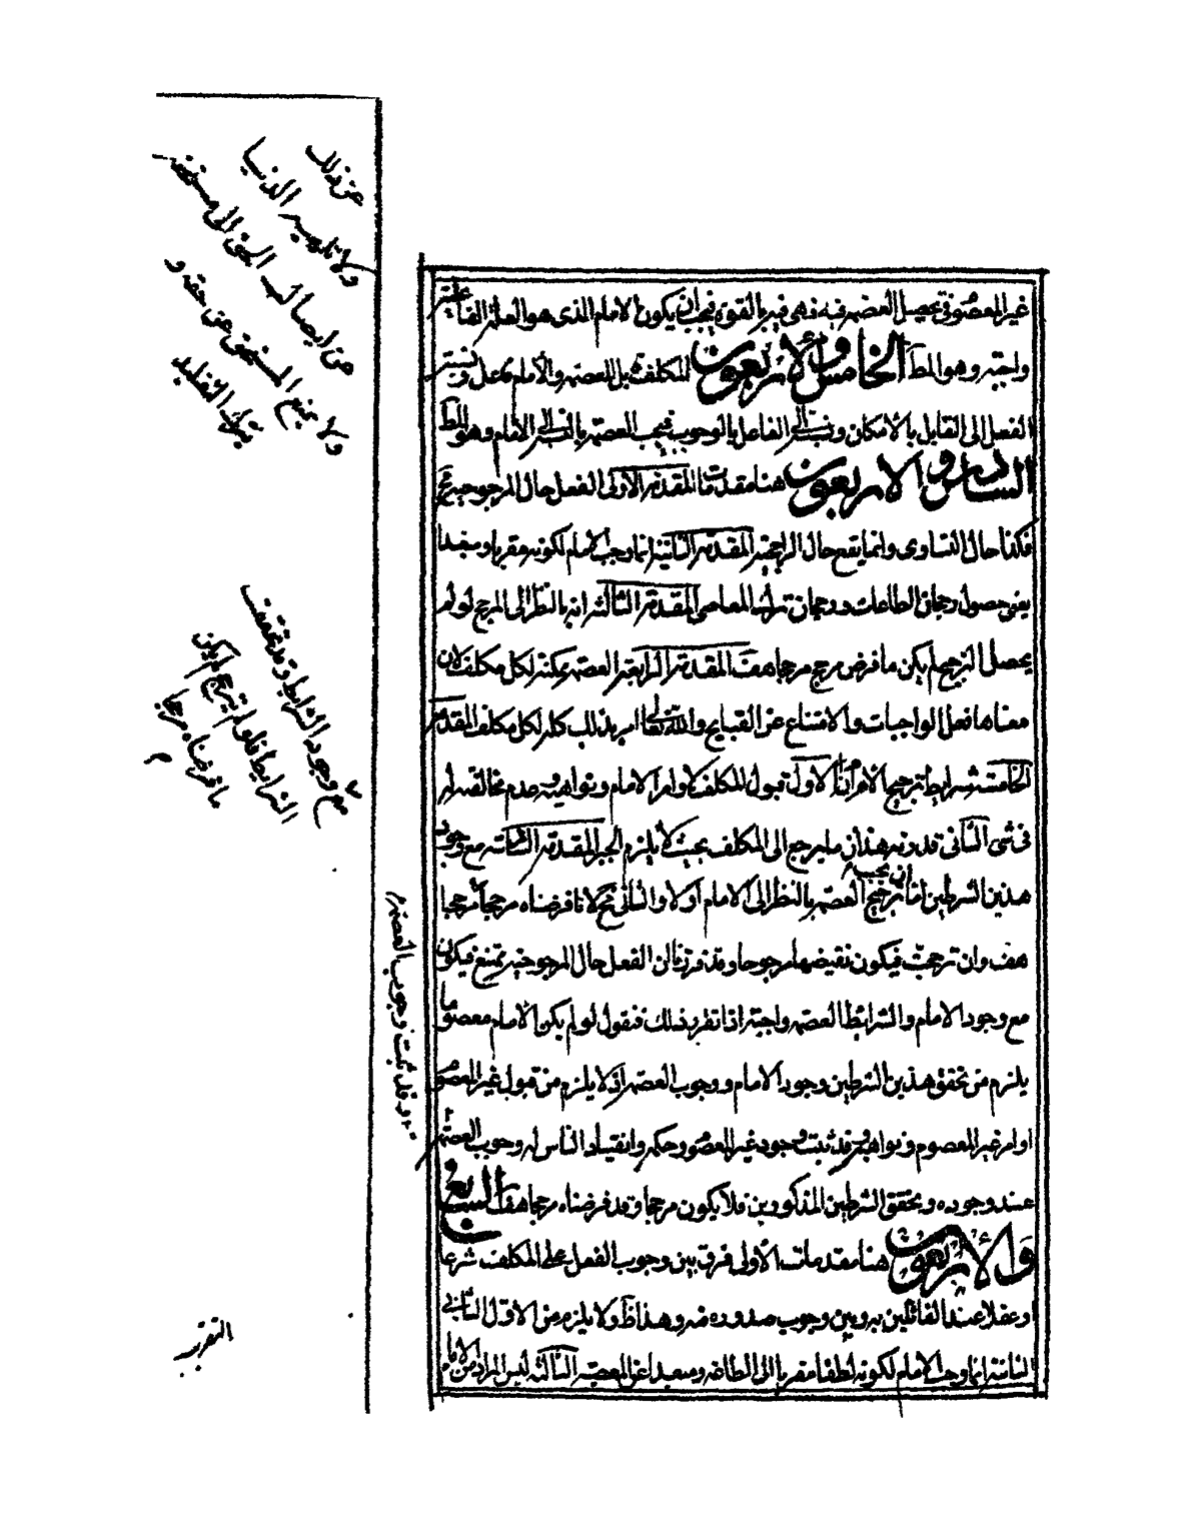 غير المعصوم في تحصيل العصمة فيه فهى فيه بالقوة فيجب ان يكون الامام الذى هو العلة الفاعلية
واجبة وهو المط الخامس والأربعون المكلف قابل للعصمة والامام فاعل ونسبة
الفعل الى القابل بالامكان ونسبته الى الفاعل بالوجوب فيجب العصمة بالنسبة الى الامام وهو المط
السادس والاربعون هنا مقدمات المقدمة الاولى الفعل حال المرجوحية مح
فكذا حال التساوى وانما يقع حال الراجحية المقدمة الثانية انما وجب الامام لكونه مقربا ومبعدا
يعنى حصول رجحان الطاعات ورجحان ترك المعاصى المقدمة الثالثة انه بالنظر الى المرجح لو لم
يحصل الترجيح لم يكن ما فرض مرجح مرجحا هف المقدمة الرابعة العصمة ممكنة لكل مكلف لان
معناها فعل الواجبات والامتناع عن القبايح والله تعالى امر بذلك كله لكل مكلف المقدمة
الخامسة شرايط ترجيح الامر ان الاول قبول المكلف لاوامر الامام ونواهيه وعدم مخالفته له
فى شئ الثانى قدرته هذان ما يرجع الى المكلف بحيث لا يلزم الجبر المقدمة السادسة مع وجود
هذين الشرطين اما ان يجب ترجيح العصمة بالنظر الى الامام او لا والثانى مح لانا فرضناه مرجحا
هف وان ترجحت فيكون نقيضها مرجوحا وقد قررنا ان الفعل حال المرجوحية ممتنع فيكون
مع وجود الامام والشرايط العصمة واجبة اذا تقرر ذلك فنقول لو لم يكن الامام معصوما
يلزم من تحقق هذين الشرطين وجود الامام ووجوب العصمة اذ لا يلزم من قبول غير المعصوم
اوامر غير المعصوم ونواهيه وقد ثبت وجود غير المعصوم وحكمه وانقياد الناس له وجوب العصمة
عند وجوده وتحقق الشرطين المذكورين فلا يكون مرجحا وقد فرضناه مرجحا هف السابع
والأربعون هنا مقدمات الأولى فرق بين وجوب الفعل على المكلف شرعا
او عقلا عند القائلين به وبين وجوب صدوره منه وهذا ظ ولا يلزم من الاول الثانى
الثانية انما وجب الامام لكونه لطفا مقربا الى الطاعة ومبعدا عن المعصية الثالثة ليس المراد من الامام
عن ذلك
ولا تلهيه الدنيا
عن ايصال الحق الى مستحقه
ولا يمنع المستحق عن حقه و
يترك التقليد
مع وجود الشرايط وقد تحققت
الشرايط فلو لم يترجح لم يكن
ما فرضناه مرجحا
م
وقد ثبت وجوب العصمة
التقريب